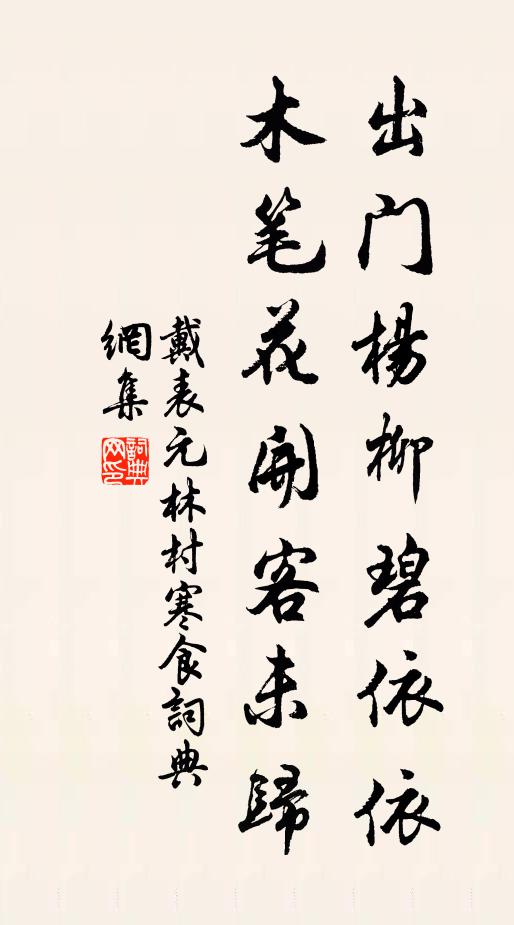 出门楊柳碧依依
木笔花開客未歸
戴表元林村寒食詞典
網集
詞典网印